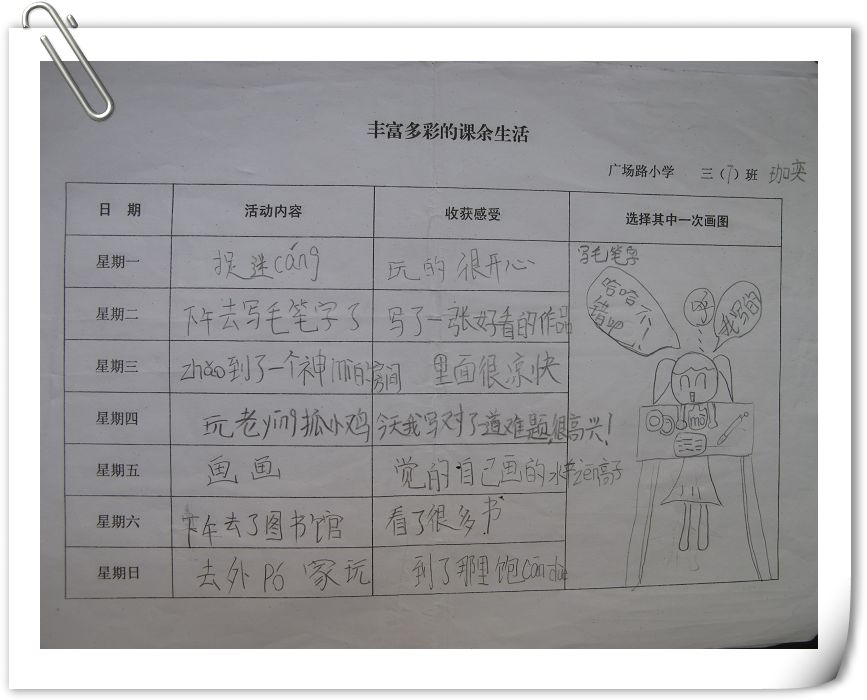 丰富多彩的课余生活
广场路小学 三(7)班 珈奕
日 期 活动内容 收获感受 选择其中一次画图
星期一 捉迷cáng 玩的很开心
星期二 下午去写毛笔字了 写了一张好看的作品
星期三 zhǎo到了一个神mì的房间 里面很凉快
星期四 玩老yīng抓小鸡 今天我写对了道难题,很高兴!
星期五 画画 觉的自己画的水
星期六 下午去了图书馆 看了很多书
星期日 去外pó家玩 到了那里饱cān
写毛笔字
哈哈不
错
我写的
mò